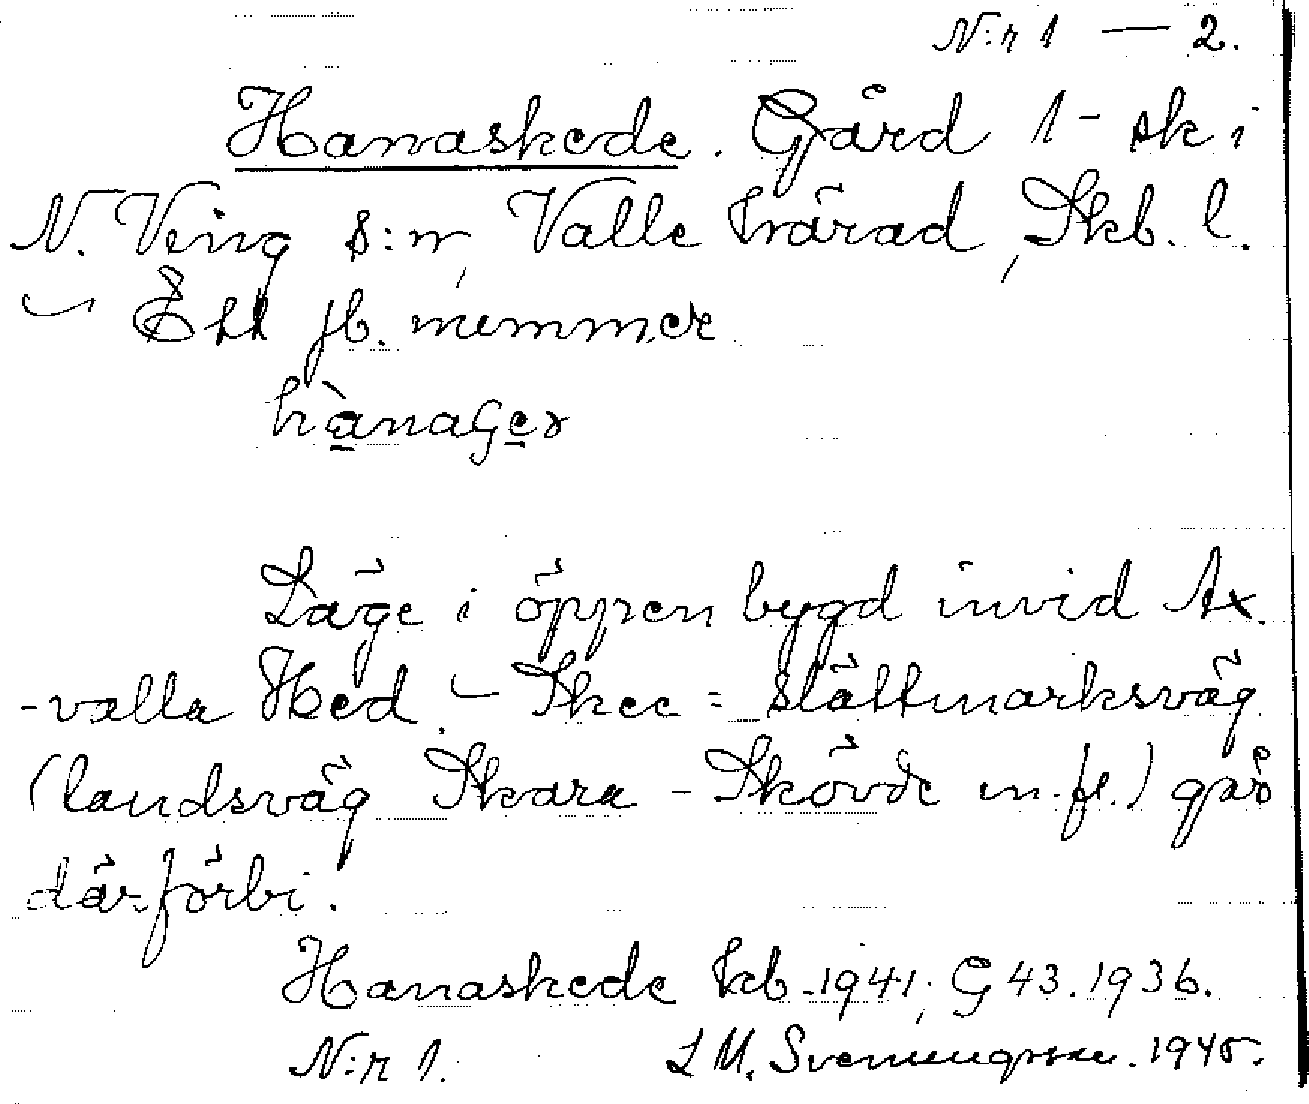 N:r 1 — 2.
Hanaskede. Gård 1 - sk i
N. Ving s:n, Valle härad, Skb. l.
– Ett jb. nummer
hànaGer
Läge i öppen bygd invid Ax-
-valla Hed. – Skee = slättmarksväg
(landsväg Skara - Skövde m.fl.) går
därförbi.
Hanaskede kb. 1941; G 43. 1936.
N:r 1. L M. Svenungsson. 1945.